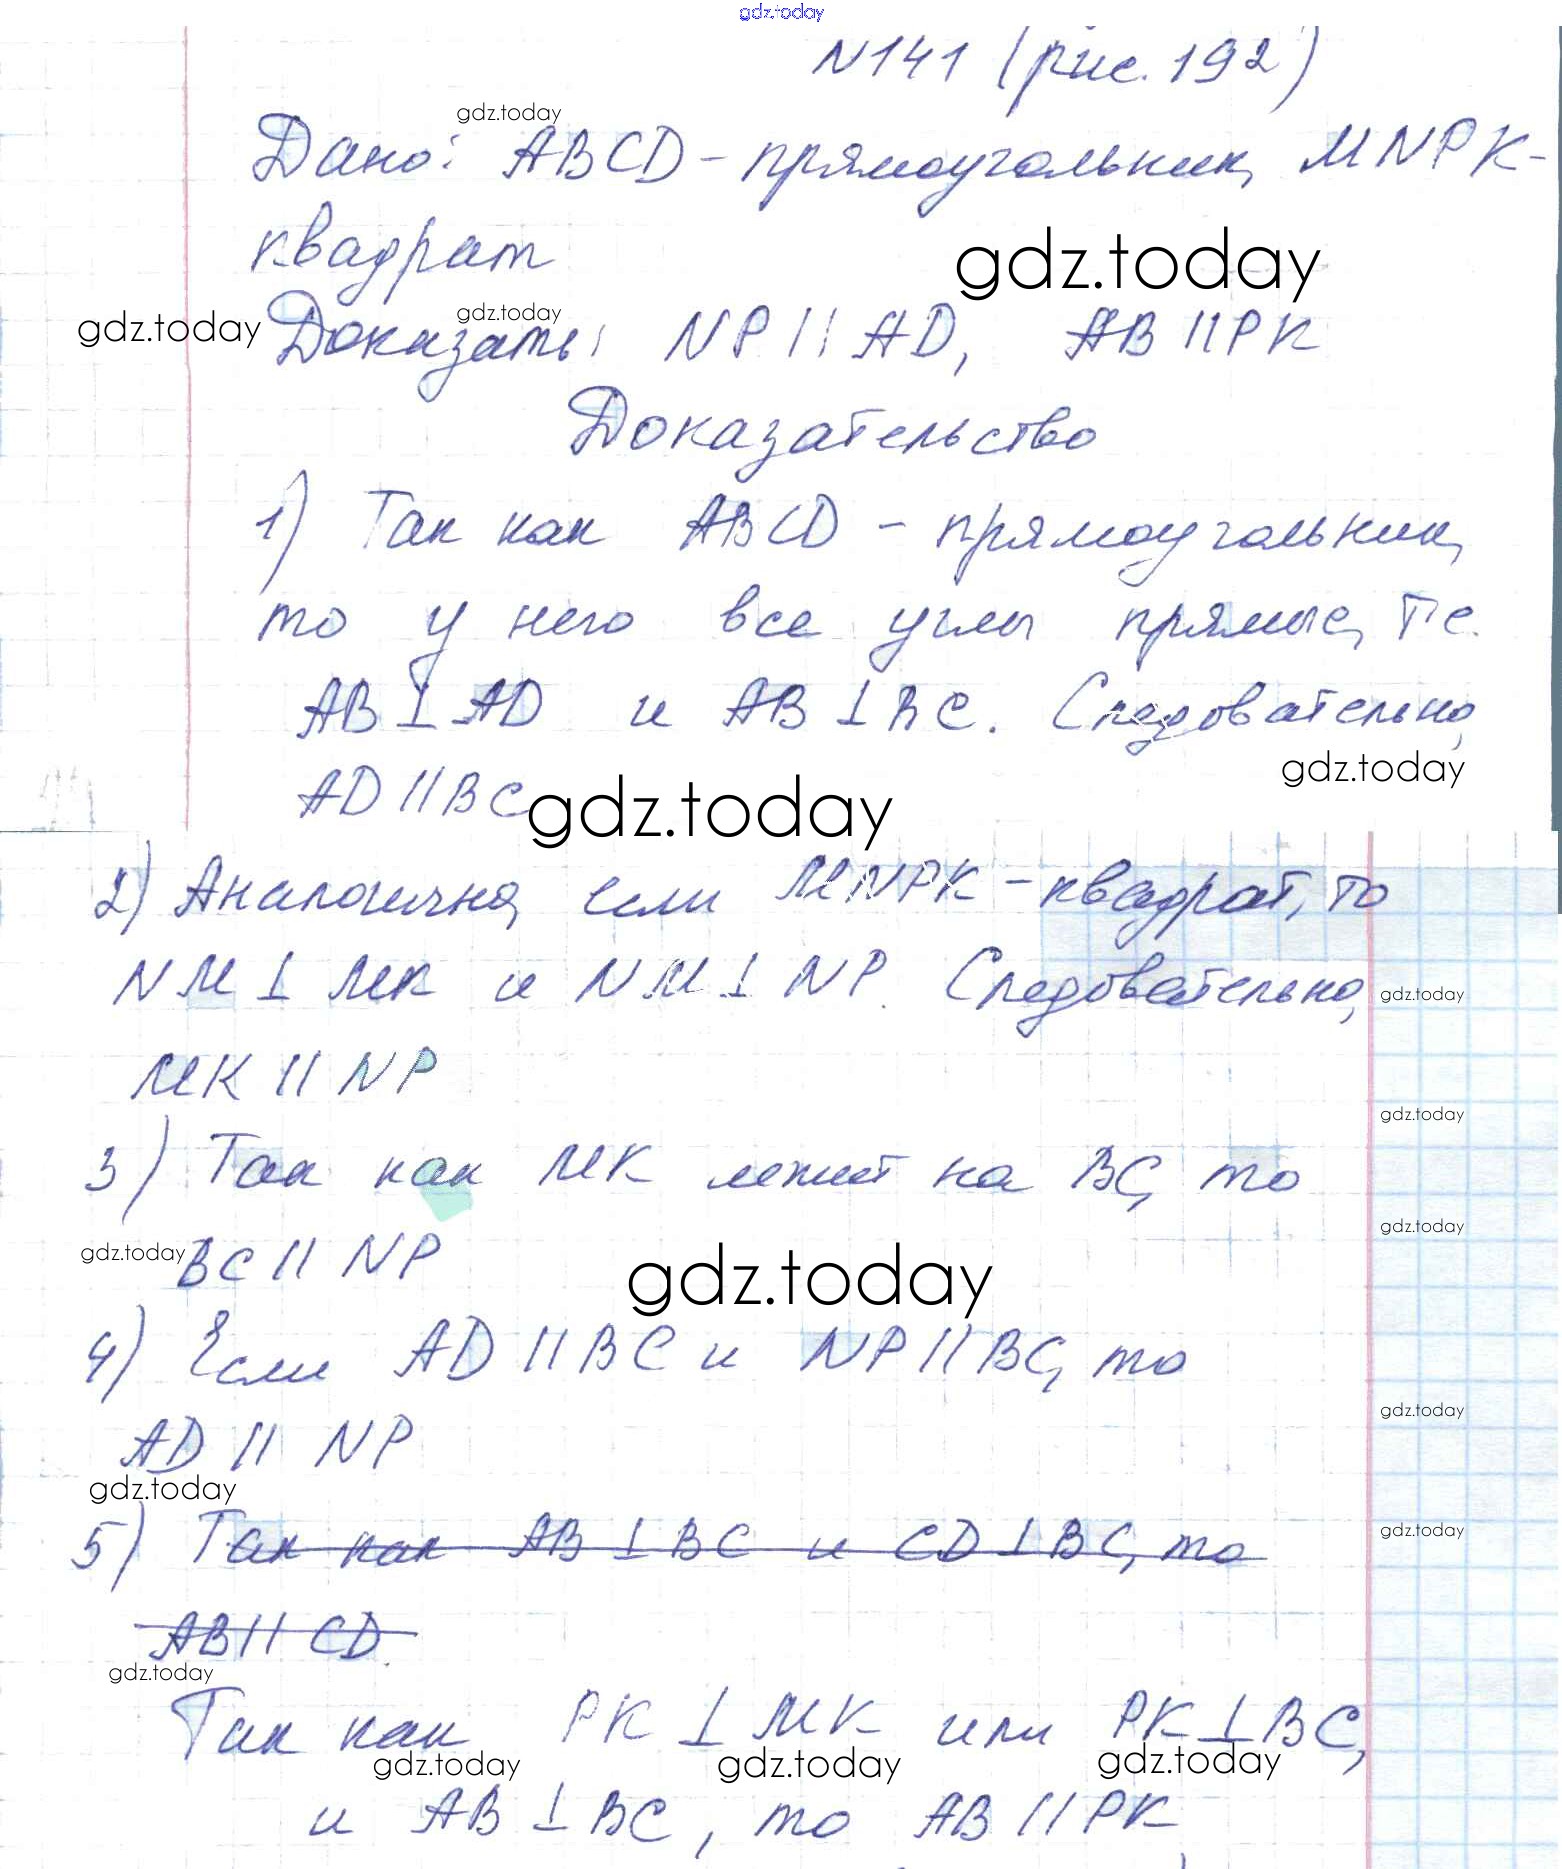 gdz.today
N141 (рис. 192)
gdz.today
Дано: ABCD - прямоугольник, MNPK -
квадрат
gdz.today
gdz.today
gdz.today
Доказать: NP || AD, AB || PK
Доказательство
1) Так как ABCD - прямоугольник,
то у него все углы прямые, т.е.
AB ⊥ AD и AB ⊥ BC. Следовательно,
gdz.today
AD || BC
gdz.today
2) Аналогично, если MNPK - квадрат, то
NM ⊥ MK и NM ⊥ NP. Следовательно,
gdz.today
MK || NP
gdz.today
3) Так как MK лежит на BC, то
gdz.today
gdz.today
BC || NP
gdz.today
4) Если AD || BC и NP || BC, то
gdz.today
AD || NP
gdz.today
5) Так как AB ⊥ BC и CD ⊥ BC, то
gdz.today
AB || CD.
gdz.today
Так как PK ⊥ MK или PK ⊥ BC,
gdz.today
gdz.today
gdz.today
и AB ⊥ BC, то AB || PK